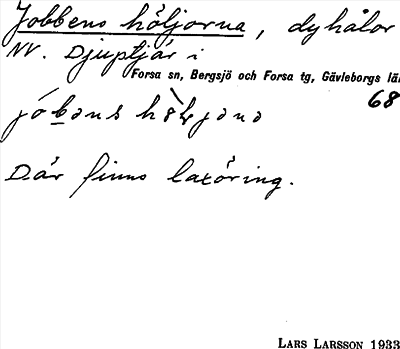 Jobbens höljorna, dyhålor
NV. Djuptjär i
Forsa sn, Bergsjö och Forsa tg, Gävleborgs lä
68
jóbəns
Där finns laxöring.
LARS LARSSON 1933